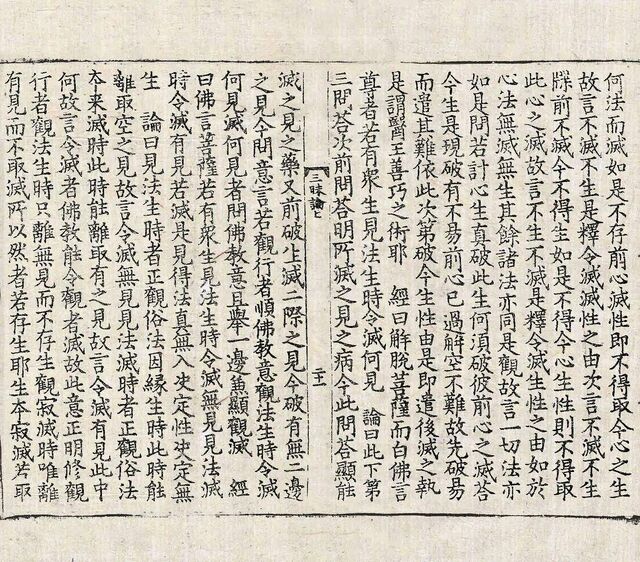 何法而滅如是不存前心滅性即不得取今心之生
故言不滅不生是釋令滅滅性之由次言不滅不生
牒前不滅今不得生如是不得今心生性則不得取
此心之滅故言不生不滅是釋令滅生性之由如於
心法無滅無生其餘諸法亦同是觀故言一切法亦
如是問若計心生真破此生何須破彼前心之滅荅
今生是現破有不易前心已過解空不難故先破易
而遣其難依此次第破今生性由是即遣後滅之執
是謂毉王善巧之術耶 經曰解脫菩薩而白佛言
尊者若有衆生見法生時令滅何見 論曰此下第
三問荅次前問荅明所滅之見之病今此問荅顯能
三昧論上 二十一
滅之見之藥又前破生滅二際之見今破有無二邊
之見今問意言若觀行者順佛教意觀法生時令滅
何見滅何見者問佛教意且舉一邊兼顯觀滅 經
曰佛言菩薩若有衆生見法生時令滅無見見法滅
時令滅有見若滅是見得法真無入決定性決定無
生 論曰見法生時者正觀俗法因緣生時此時能
離取空之見故言令滅無見見法滅時者正觀俗法
本来滅時此時能離取有之見故言令滅有見此中
何故言令滅者佛教能令觀者滅故此意正明修觀
行者觀法生時只離無見而不存生觀寂滅時唯離
有見而不取滅所以然者若存生耶生本寂滅若取